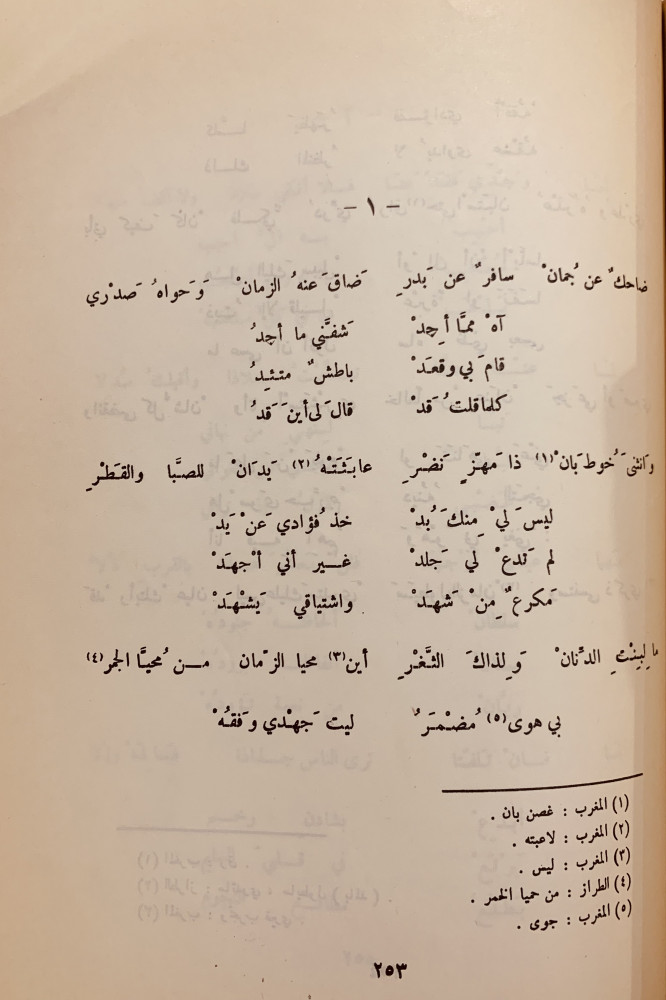 - ١ -
ضاحكٌ عن جُمانْ سافرٌ عن بَدرِ ضَاقَ عنهُ الزمانْ وَحواهُ صَدْري
آهْ ممَّا أجِدْ شفَّني ما أجِدُ
قامَ بي وقعَدْ باطشٌ متئِدُ
كلما قلتُ قَدْ قالَ لي أينَ قَدُ
وَانثنى خُوط بَانْ(١) ذا مَهزٍّ نَضْرِ عابَثَتْهُ(٢) يَدَانْ للصَّبا والقَطْرِ
ليسَ ليْ مِنكَ بُدْ خذ فُؤادي عَنْ يَدْ
لم تَدعْ لي جَلدْ غــير أني أجْهَدْ
مَكرعٌ مِنْ شَهدْ واشتياقي يَشْهَدْ
ما لِبِنْتِ الدِّنانْ وَلِذاكَ الثَّغْرِ أين(٣) محيا الزمان مــن مُحيَّا الجمر(٤)
بي هوى(٥) مُضْمَرٌ ليت جَهْدي وفقُهْ
(١) المغرب : غصن بان .
(٢) المغرب : لاعبته .
(٣) المغرب : ليس .
(٤) الطراز : من حميا الخمر .
(٥) المغرب : جوى .
٢٥٣